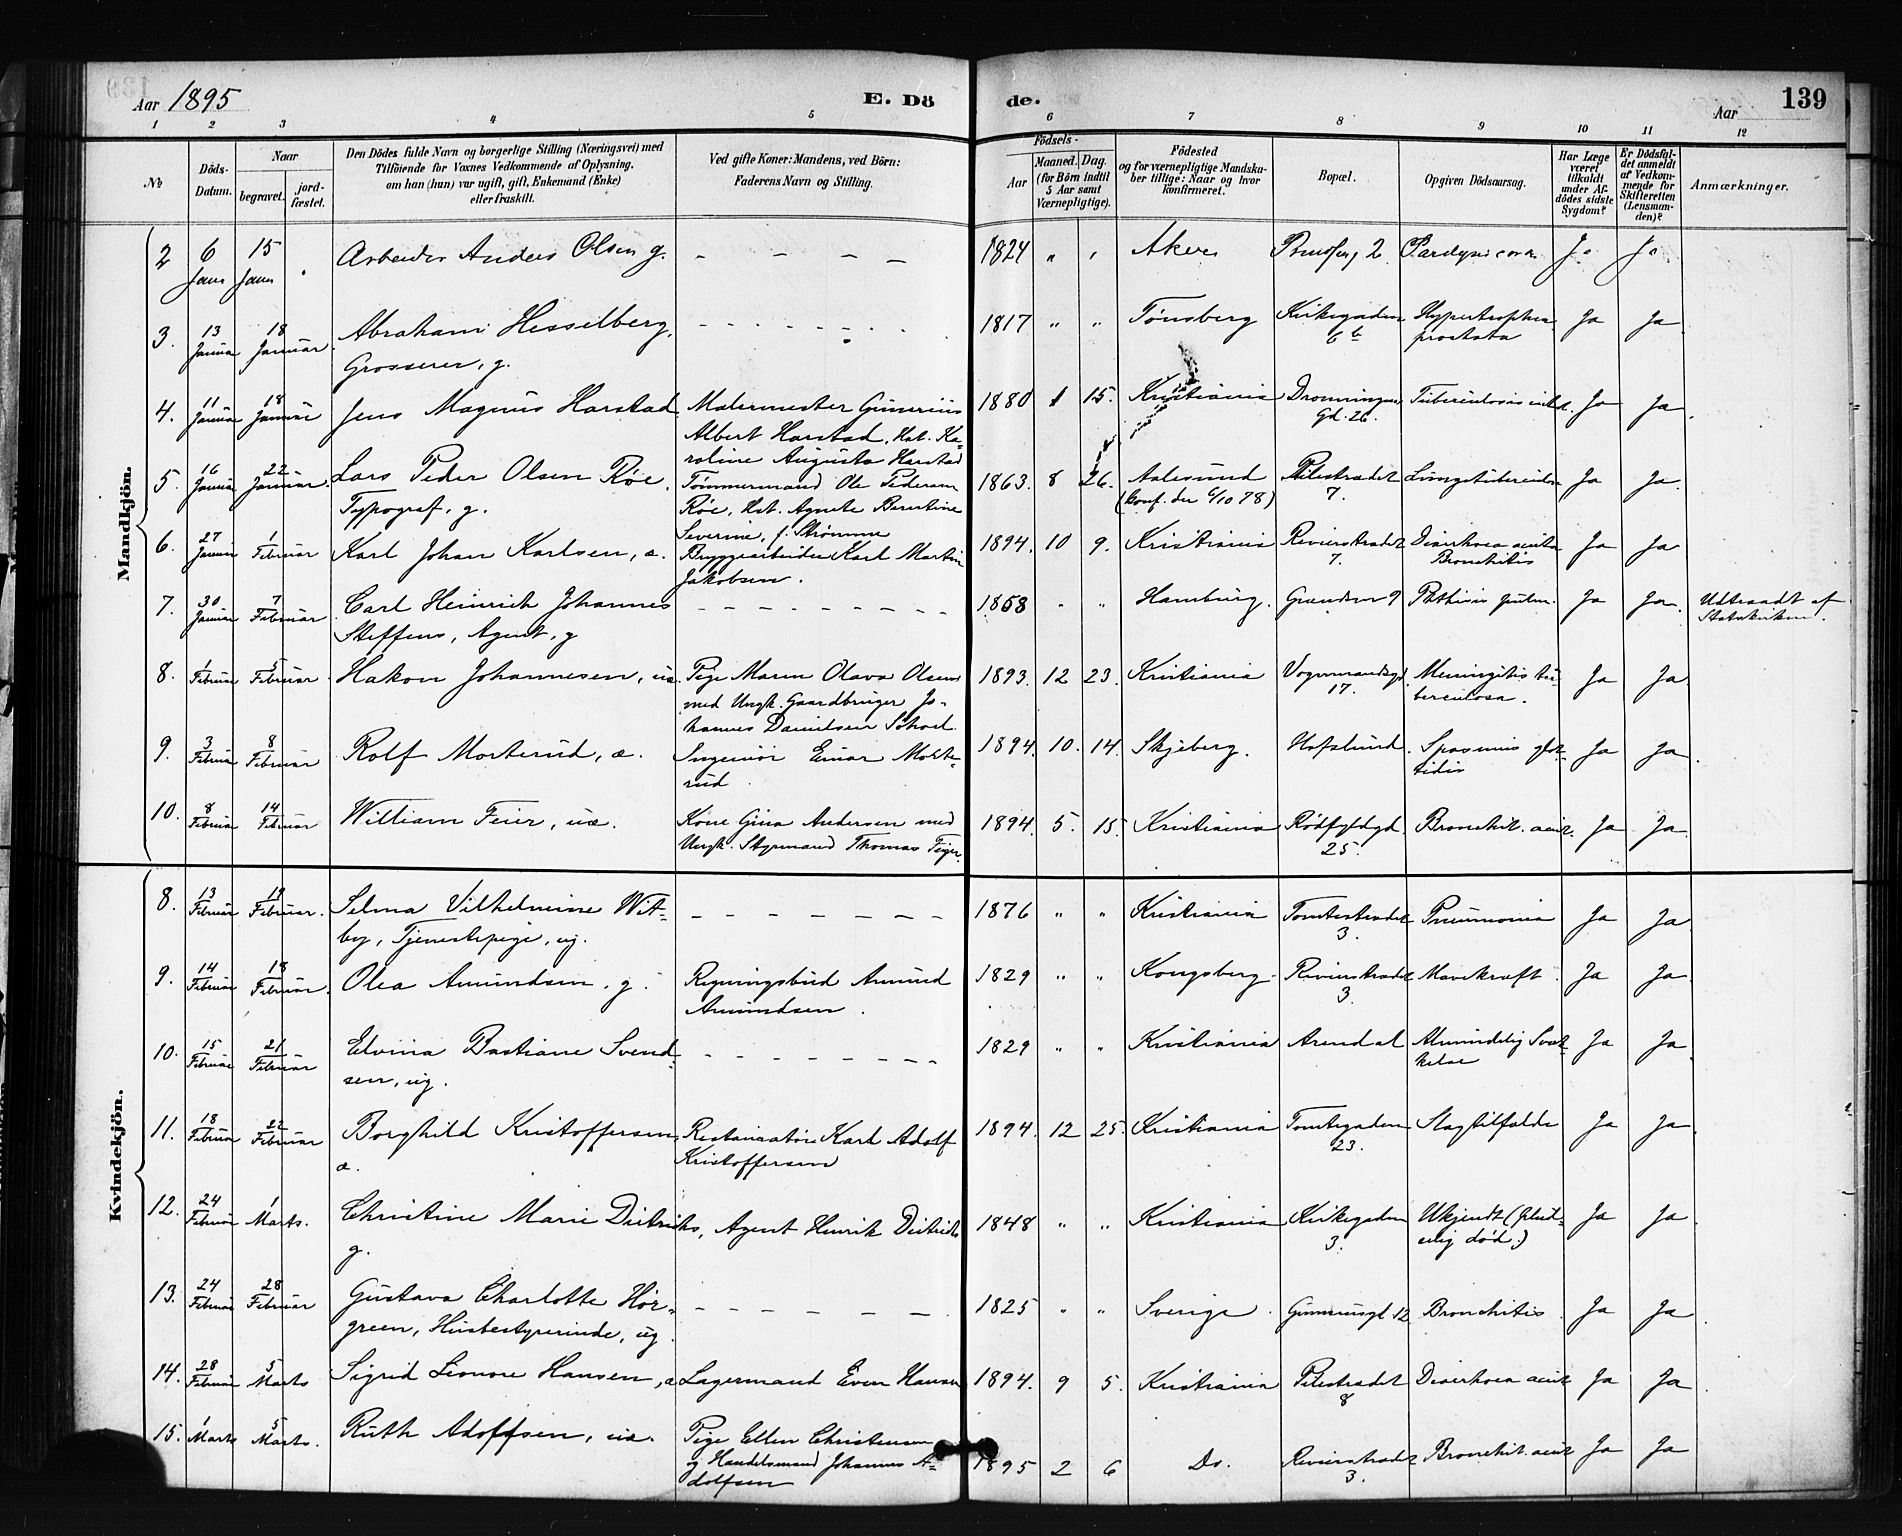 Aar 1895
E. Dö
de.
Aar
139
1 2 3 4 5 6 7 8 9 10 11 12
No
Döds-Datum.
Naar
begravet.
jord-fæstet.
Den Dödes fulde Navn og borgerlige Stilling (Næringsvei) med
Tilföiende for Voxnes Vedkommende af Oplysning.
om han (hun) var ugift, gift, Enkemand (Enke)
eller fraskilt.
Ved gifte Koner: Mandens, ved Börn:
Faderens Navn og Stilling.
Födsels-
Aar
Maaned. Dag.
(for Börn indtil
5 Aar samt
Værnepligtige).
Födested
og for værnepligtige Mandska-
ber tillige: Naar og hvor
konfirmeret.
Bopæl.
Opgiven Dödsaarsag.
Har Læge
været
tilkaldt
under Af-
dödes sidste
Sygdom?
Er Dödsfal-
det anmeldt
af Vedkom-
mende for
Skifteretten
(Lensman-
den)?
Anmærkninger.
Mandkjön.
2 6 Janr 15 Janr Arbeider Anders Olsen g. 1824 " " Aker 2 Ja Ja
3. 13 Januar 18 Januar. Abraham Hesselberg, 1817 " " Tønsberg Kirkegaden Hypertrophia Ja Ja
Grosserer, g. 6b prostata
4. 11 Januar 18 Januar Jens Magnus Harstad Malermester Gunerius 1880 1 15. Kristiania Dronningens Ja Ja
Gd. 26.
Albert Harstad, Hst. Ka-
roline Augusta Harstad
5. 16 Januar 22 Januar. Lars Peder Olsen Röe, Tömmermand Ole Pedersen 1863. 8 26. Aalesund Pilestrædet Lungetuberculose Ja Ja.
Typograf, g. Röe, Hst. Agnete Berentine (konf. den 6/10 78) 7.
Severine, f. Strømme
6. 27 Januar 1 Februar Karl Johan Karlsen, æ. Bryggearbeider Karl Martin 1894. 10 9. Kristiania Revierstrædet Diarrhoea acuta Ja Ja
Jakobsen. 7. Bronchitis
7. 30 Januar 7 Februar Carl Heinrich Johannes 1858 " " Hamburg. Grændsen 9 Phthisis pulm. Ja Ja. Udtraadt af
Steffens, Agent, g Statskirken.
8. 1 Februar 5 Februar Hakon Johannesen, uæ. Pige Maren Olava Olsen 1893. 12 23. Kristiania Vognmandsgd. Meningitis tu- Ja Ja.
med Ungk. Gaardbruger Jo- 17. berculosa.
hannes Danielsen
9. 3 Februar 8 Februar Rolf Morterud, æ. Ingeniør Einar Morte- 1894. 10. 14. Skjeberg. Hafslund. Spasmus glot- Ja Ja
rud tidis
10. 8 Februar 14 Februar William Feier, uæ. Kone Gina Andersen med 1894. 5. 15. Kristiania Rødfyldgd. Bronchit. acut. Ja Ja
Ungk. Styrmand Thomas Feier. 25.
Kvindekjön.
8. 13 Februar 19 Februar. Selma Vilhelmine Wit- 1876 " " Kristiania Tomtestrædet Pneumonia Ja Ja
by, Tjenestepige, ug. 3.
9. 14 Februar 18 Februar. Olea Amundsen, g. Regningsbud Amund 1829 " " Kongsberg. Revierstrædet Mavekræft. Ja Ja
Amundsen. 3.
10. 15 Februar 21 Februar Elvina Bastiane Svend- 1829 " " Kristiania Arendal Almindelig Svæk- Ja Ja
sen, ug. kelse
11. 18 Februar 22 Februar Borghild Kristoffersen, Restauratør Karl Adolf 1894. 12 25. Kristiania Tomtegaden Slagtilfælde Ja Ja
æ. Kristoffersen 23.
12. 24 Februar 1 Marts. Christine Marie Dietrichs, Agent Henrik Dietrichs 1848 " " Kristiania Kirkegaden Ukjendt (plud- Ja Ja
g. 3. selig død.)
13. 24 Februar 28 Februar Gustava Charlotte Hör- 1825 " " Sverige. Gunnerusgd 12 Bronchitis Ja Ja
green, Husbestyrerinde, ug.
14. 28 Februar 5 Marts Sigrid Leonore Hansen, æ Lagermand Even Hansen 1894. 9 5. Kristiania Pilestrædet Diarrhoea acut. Ja Ja
8
15. 1 Marts 5 Marts. Ruth Adolfsen, uæ. Pige Ellen Christensen 1895 2 6 Do. Revierstrædet Bronchit. acut Ja Ja
og Handelsmand Johannes A- 3.
dolfsen